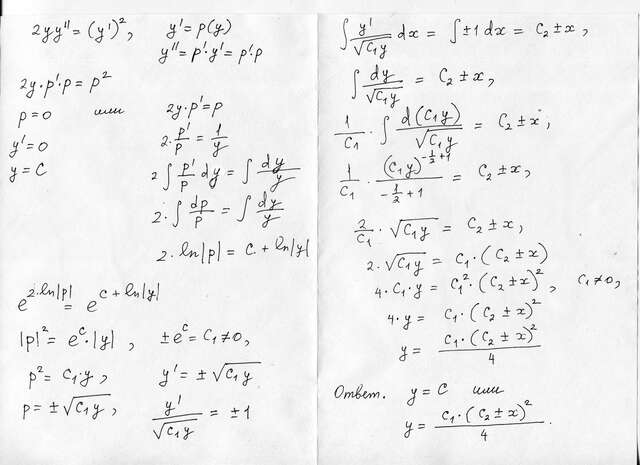 2yy″ = (y′)², y′ = p(y)
y″ = p′·y′ = p′·p
2y·p′·p = p²
p = 0 или 2y·p′ = p
y′ = 0 2·p′/p = 1/y
y = C 2∫ p′/p dy = ∫ dy/y
2·∫ dp/p = ∫ dy/y
2·ln|p| = C + ln|y|
e^(2·ln|p|) = e^(C + ln|y|)
|p|² = e^C·|y|, ±e^C = C₁ ≠ 0,
p² = C₁·y, y′ = ±√(C₁y)
p = ±√(C₁y), y′/√(C₁y) = ±1
∫ y′/√(C₁y) dx = ∫ ±1 dx = C₂ ± x,
∫ dy/√(C₁y) = C₂ ± x,
1/C₁ · ∫ d(C₁y)/√(C₁y) = C₂ ± x,
1/C₁ · (C₁y)^(-1/2+1)/(-1/2+1) = C₂ ± x,
2/C₁ · √(C₁y) = C₂ ± x,
2·√(C₁y) = C₁·(C₂ ± x)
4·C₁·y = C₁²·(C₂ ± x)², C₁ ≠ 0,
4·y = C₁·(C₂ ± x)²
y = C₁·(C₂ ± x)²/4
Ответ. y = C или
y = C₁·(C₂ ± x)²/4.